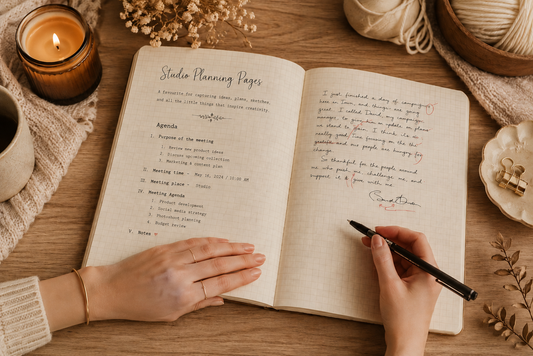 Studio Planning Pages
A favourite for capturing ideas, plans, sketches,
and all the little things that inspire creativity.
Agenda
I. Purpose of the meeting
1. Review new product ideas
2. Discuss upcoming collection
3. Marketing & content plan
II. Meeting time - May 10, 2024 / 10:00 AM
III. Meeting place - Studio
IV. Meeting Agenda
1. Product development
2. Social media strategy
3. Photoshoot planning
4. Budget review
V. Notes
I just finished a day of campaigning
here in Iowa, and things are going
great. I called David, my campaign
manager, to give him an update on where
we stand
really good
and our people are hungry for
change.
So thankful for the people around
me who push me, challenge me, and
support me.